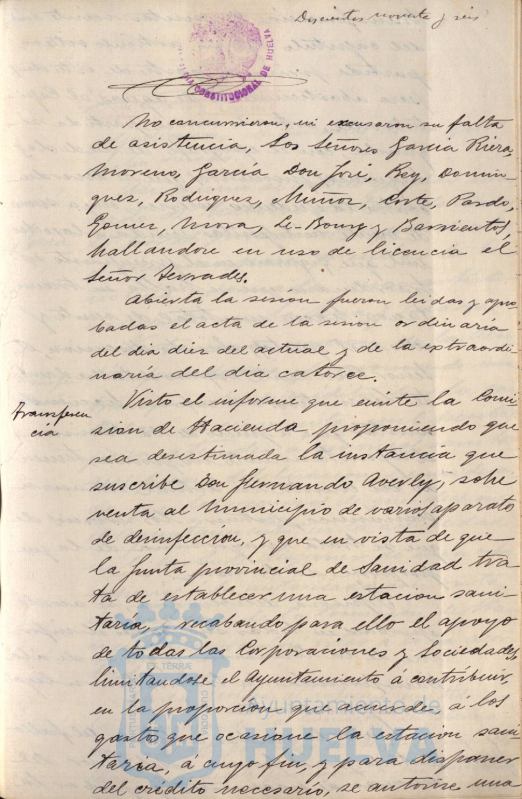 Doscientos noventa y seis
CONSTITUCIONAL DE HUELVA
No concurrieron, ni excusaron su falta
de asistencia, los Señores García Riera,
Moreno, García Don José, Rey, Domin
guez, Rodriguez, Muñoz, Corte, Pardo,
Gomez, Mora, Le-Bourg y Barrientos,
hallandose en uso de licencia el
Señor Terrades.
Abierta la sesión fueron leidas y apro
badas el acta de la sesion ordinaria
del dia diez del actual y de la extraordi
naria del dia catorce.
Transferen
cia
Visto el informe que emite la Comi
sion de Hacienda proponiendo que
sea desestimada la instancia que
suscribe Don Fernando Averly, sobre
venta al Municipio de varios aparato
de desinfección, y que en vista de que
la Junta provincial de Sanidad tra
ta de establecer una estacion sani
taria, recabando para ello el apoyo
de todas las Corporaciones y Sociedades,
limitandose el Ayuntamiento á contribuir,
en la proporcion que acuerde, á los
gastos que ocasione la estacion sani
taria, a cuyo fin, y para disponer
del crédito necesario, se autorice una
Ayuntamiento de
HUELVA